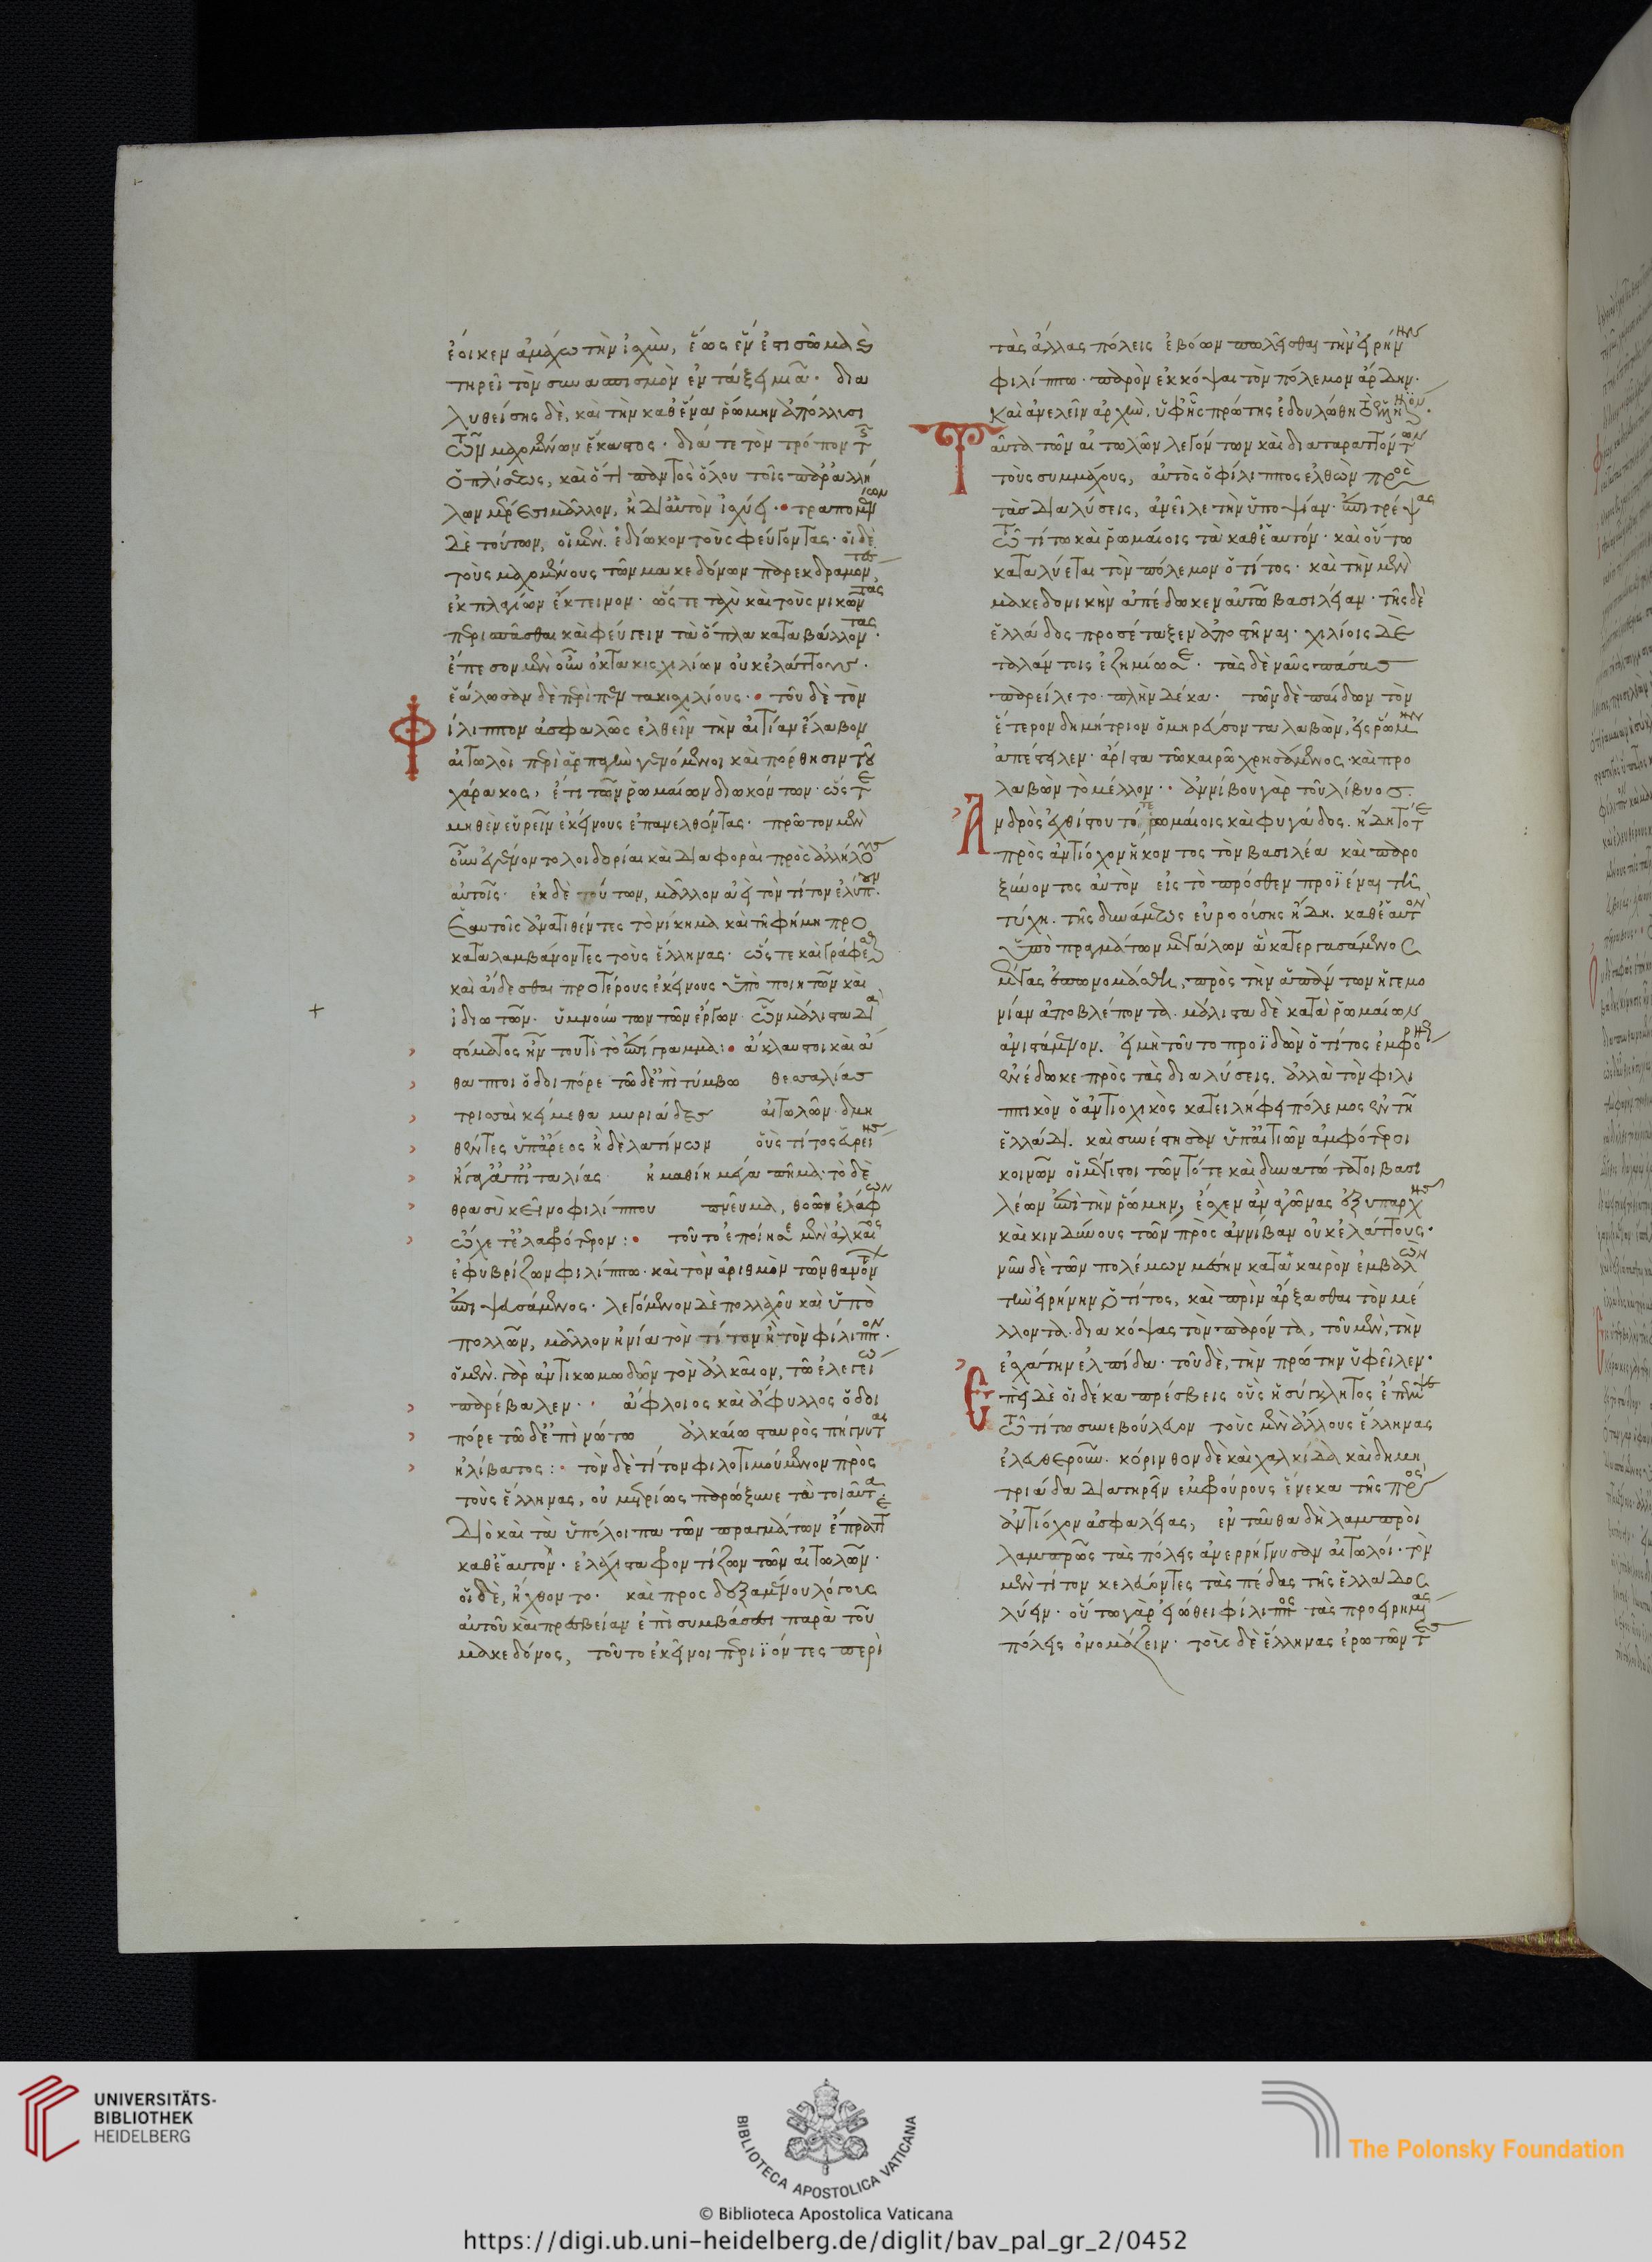 ἔοικεν ἀμάχω τὴν ἰσχὺν, ἕως ἕν ἐστι σῶμα καὶ
τηρεῖ τὸν συνασπισμὸν ἐν τάξει μιᾶ. δια
λυθείσης δὲ, καὶ τὴν καθ' ἕνα ῥώμην ἀπόλλυσι
τῶν μαχομένων ἕκαστος. διά τε τὸν τρόπον τῆς
ὁπλίσεως, καὶ ὅτι παντὸς ὅλου τοῖς παρ' ἀλλή
λων μέρεσι μᾶλλον, ἢ δι' αὐτὸν ἰσχύει. τραπομένων
δὲ τούτων, οἱ μὲν ἐδίωκον τοὺς φεύγοντας. οἱ δὲ
τοὺς μαχομένους τῶν μακεδόνων παρεκδραμόντες
ἐκ πλαγίων ἔκτεινον. ὥστε ταχὺ καὶ τοὺς νικῶντας
περισπᾶσθαι καὶ φεύγειν τὰ ὅπλα καταβάλλοντας.
ἔπεσον μὲν οὖν ὀκτακισχιλίων οὐκ ἐλάττους.
ἑάλωσαν δὲ περὶ πεντακισχιλίους. τοῦ δὲ τὸν
Φίλιππον ἀσφαλῶς ἐλθεῖν τὴν αἰτίαν ἔλαβον
αἰτωλοὶ περὶ ἁρπαγὴν γενόμενοι καὶ πόρθησιν τοῦ
χάρακος, ἔτι τῶν ῥωμαίων διωκόντων. ὥστε
μηθὲν εὑρεῖν ἐκείνους ἐπανελθόντας. πρῶτον μὲν
οὖν ἐγένοντο λοιδορίαι καὶ διαφοραὶ πρὸς ἀλλήλους
αὐτοῖς. ἐκ δὲ τούτων, μᾶλλον ἀεὶ τὸν τίτον ἐλύπουν.
ἑαυτοῖς ἀνατιθέντες τὸ νίκημα καὶ τῆ φήμη προ
καταλαμβάνοντες τοὺς ἕλληνας. ὥστε καὶ γράφεσθαι
καὶ ἄδεσθαι προτέρους ἐκείνους ὑπὸ ποιητῶν καὶ
ἰδιωτῶν. ὑμνούντων τῶν ἔργων. ὧν μάλιστα διὰ
στόματος ἦν τουτὶ τὸ ἐπίγραμμα: ἄκλαυστοι καὶ ἄ
θαπτοι ὁδοιπόρε τῶδ' ἐπὶ τύμβω θεσσαλίας
τρισσαὶ κείμεθα μυριάδες αἰτωλῶν δμη
θέντες ὑπ' ἄρεος ἠδὲ λατίνων οὓς τίτος εὐρείης
ἤγαγ' ἀπ' ἰταλίας ἠμαθίη μέγα πῆμα. τὸ δὲ
θρασὺ κεῖνο φιλίππου πνεῦμα, θοῶν ἐλάφων
ὤχετ' ἐλαφρότερον: τοῦτο ἐποίησε μὲν ἀλκαῖος
ἐφυβρίζων φιλίππω. καὶ τὸν ἀριθμὸν τῶν θανόντων
ἐπιψευσάμενος. λεγόμενον δὲ πολλαχοῦ καὶ ὑπὸ
πολλῶν, μᾶλλον ἠνία τὸν τίτον ἢ τὸν φίλιππον.
ὁ μὲν γὰρ ἀντικωμωδῶν τὸν ἀλκαῖον, τῶ ἐλεγείω
παρέβαλεν. ἄφλοιος καὶ ἄφυλλος ὁδοι
πόρε τῶδ' ἐπὶ νώτω ἀλκαίω σταυρὸς πήγνυται
ἠλίβατος: τὸν δὲ τίτον φιλοτιμούμενον πρὸς
τοὺς ἕλληνας, οὐ μετρίως παρώξυνε τὰ τοιαῦτα.
διὸ καὶ τὰ ὑπόλοιπα τῶν πραγμάτων ἔπραττε
καθ' ἑαυτὸν. ἐλάχιστα φροντίζων τῶν αἰτωλῶν.
οἱ δὲ, ἤχθοντο. καὶ προσδεξαμένου λόγους
αὐτοῦ καὶ πρεσβείαν ἐπὶ συμβάσει παρὰ τοῦ
μακεδόνος, τοῦτο ἐκεῖνοι περιϊόντες περὶ
τὰς ἄλλας πόλεις ἐβόων πωλεῖσθαι τὴν εἰρήνην
φιλίππω. παρὸν ἐκκόψαι τὸν πόλεμον ἄρδην.
καὶ ἀνελεῖν ἀρχὴν, ὑφ' ἧς πρώτης ἐδουλώθη τὸ ἑλληνικόν.
Ταῦτα τῶν αἰτωλῶν λεγόντων καὶ διαταραττόντων
τοὺς συμμάχους, αὐτὸς ὁ φίλιππος ἐλθὼν πρὸς
τὰς διαλύσεις, ἀνεῖλε τὴν ὑποψίαν. ἐπιτρέψας
τῶ τίτω καὶ ῥωμαίοις τὰ καθ' ἑαυτόν. καὶ οὕτω
καταλύεται τὸν πόλεμον ὁ τίτος. καὶ τὴν μὲν
μακεδονικὴν ἀπέδωκεν αὐτῶ βασιλείαν. τῆς δὲ
ἑλλάδος προσέταξεν ἀποστῆναι. χιλίοις δὲ
ταλάντοις ἐζημίωσε. τὰς δὲ ναῦς πάσας
παρείλετο. πλὴν δέκα. τῶν δὲ παίδων τὸν
ἕτερον δημήτριον ὁμηρεύσοντα λαβὼν, εἰς ῥώμην
ἀπέστειλεν. ἄριστα τῶ καιρῶ χρησάμενος. καὶ προ
λαβὼν τὸ μέλλον. ἀννίβου γὰρ τοῦ λίβυος.
Ἀνδρὸς ἐχθίστου τότε ῥωμαίοις καὶ φυγάδος. ἤδη τότε
πρὸς ἀντίοχον ἥκοντος τὸν βασιλέα καὶ παρο
ξύνοντος αὐτὸν εἰς τὸ πρόσθεν προϊέναι τῆ
τύχη. τῆς δυνάμεως εὐροούσης ἤδη. καθ' ἑαυτὸν
ὑπὸ πραγμάτων μεγάλων ἃ κατεργασάμενος
μέγας ἐπωνομάσθη, πρὸς τὴν ἁπάντων ἡγεμο
νίαν ἀποβλέποντα. μάλιστα δὲ κατὰ ῥωμαίων
ἀνιστάμενον. εἰ μὴ τοῦτο προϊδὼν ὁ τίτος ἐμφρόνως
ἐνέδωκε πρὸς τὰς διαλύσεις. ἀλλὰ τὸν φιλι
ππικὸν ὁ ἀντιοχικὸς κατειλήφει πόλεμος ἐν τῆ
ἑλλάδι. καὶ συνέστησαν ὑπ' αἰτιῶν ἀμφότεροι
κοινῶν οἱ μέγιστοι τῶν τότε καὶ δυνατώτατοι βασι
λέων ἐπὶ τὴν ῥώμην, ἔσχεν ἂν ἀγῶνας ἐξ ὑπαρχῆς
καὶ κινδύνους τῶν πρὸς ἀννίβαν οὐκ ἐλάττους.
νῦν δὲ τῶν πολέμων μέσην κατὰ καιρὸν ἐμβαλὼν
τὴν εἰρήνην ὁ τίτος, καὶ πρὶν ἄρξασθαι τὸν μέ
λλοντα. διακόψας τὸν παρόντα, τοῦ μὲν, τὴν
ἐσχάτην ἐλπίδα. τοῦ δὲ, τὴν πρώτην ὑφεῖλεν.
Ἐπεὶ δὲ οἱ δέκα πρέσβεις οὓς ἡ σύγκλητος ἔπεμψε
τῶ τίτω συνεβούλευον τοὺς μὲν ἄλλους ἕλληνας
ἐλευθεροῦν. κόρινθον δὲ καὶ χαλκίδα καὶ δημη
τριάδα διατηρεῖν ἐμφρούρους ἕνεκα τῆς πρὸς
ἀντίοχον ἀσφαλείας, ἐνταῦθα δὴ λαμπροὶ
λαμπρῶς τὰς πόλεις ἀνερρήγνυσαν αἰτωλοί. τὸν
μὲν τίτον κελεύοντες τὰς πέδας τῆς ἑλλάδος
λύειν. οὕτω γὰρ εἰώθει φίλιππος τὰς προειρημένας
πόλεις ὀνομάζειν. τοὺς δὲ ἕλληνας ἐρωτῶντες
UNIVERSITÄTS-
BIBLIOTHEK
HEIDELBERG
BIBLIOTECA APOSTOLICA VATICANA
The Polonsky Foundation
© Biblioteca Apostolica Vaticana
https://digi.ub.uni-heidelberg.de/diglit/bav_pal_gr_2/0452